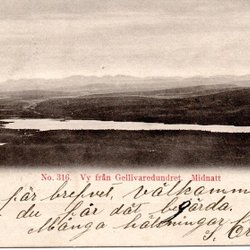 No. 316. Vy från Gellivaredundret. Midnatt
får brefvet, välkommen
du får dåt begärda.
Många hälsningar